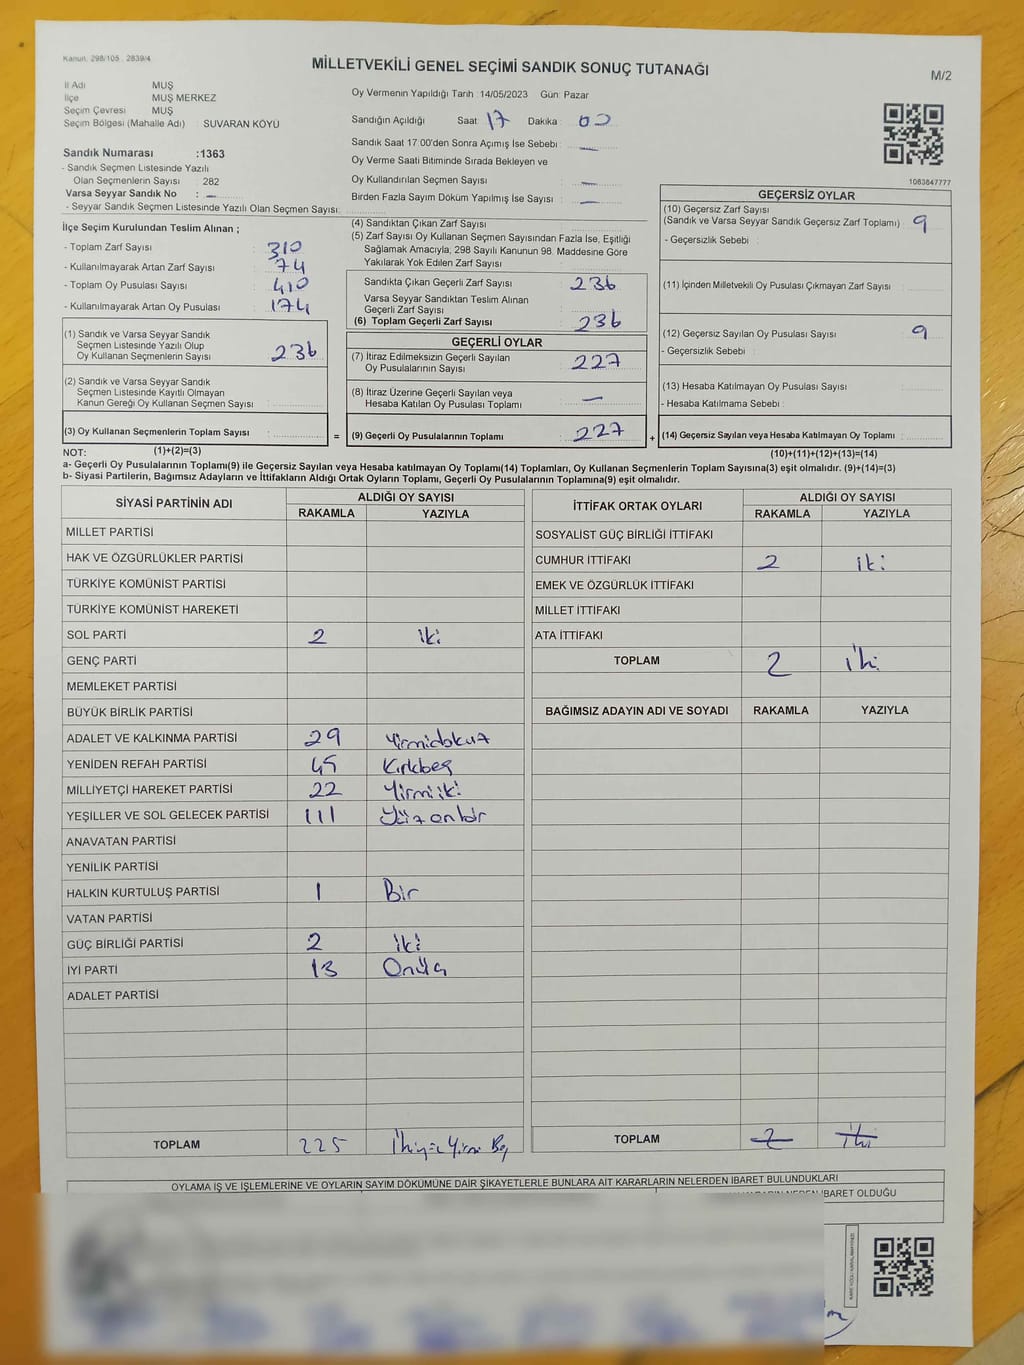 Kanun. 298/105 , 2839/4
MİLLETVEKİLİ GENEL SEÇİMİ SANDIK SONUÇ TUTANAĞI
M/2
İl Adı MUŞ
İlçe MUŞ MERKEZ
Seçim Çevresi MUŞ
Seçim Bölgesi (Mahalle Adı) : SUVARAN KÖYÜ
Sandık Numarası :1363
- Sandık Seçmen Listesinde Yazılı
Olan Seçmenlerin Sayısı : 282
Varsa Seyyar Sandık No : –
- Seyyar Sandık Seçmen Listesinde Yazılı Olan Seçmen Sayısı:
Oy Vermenin Yapıldığı Tarih :14/05/2023 Gün: Pazar
Sandığın Açıldığı Saat 17 Dakika : 00
Sandık Saat 17:00'den Sonra Açımış İse Sebebi : –
Oy Verme Saati Bitiminde Sırada Bekleyen ve
Oy Kullandırılan Seçmen Sayısı : –
Birden Fazla Sayım Döküm Yapılmış İse Sayısı : –
1083847777
İlçe Seçim Kurulundan Teslim Alınan ;
- Toplam Zarf Sayısı : 310
- Kullanılmayarak Artan Zarf Sayısı : 74
- Toplam Oy Pusulası Sayısı : 410
- Kullanılmayarak Artan Oy Pusulası : 174
(1) Sandık ve Varsa Seyyar Sandık
Seçmen Listesinde Yazılı Olup
Oy Kullanan Seçmenlerin Sayısı : 236
(2) Sandık ve Varsa Seyyar Sandık
Seçmen Listesinde Kayıtlı Olmayan
Kanun Gereği Oy Kullanan Seçmen Sayısı :
(3) Oy Kullanan Seçmenlerin Toplam Sayısı :
(4) Sandıktan Çıkan Zarf Sayısı :
(5) Zarf Sayısı Oy Kullanan Seçmen Sayısından Fazla İse, Eşitliği
Sağlamak Amacıyla, 298 Sayılı Kanunun 98. Maddesine Göre
Yakılarak Yok Edilen Zarf Sayısı :
Sandıkta Çıkan Geçerli Zarf Sayısı : 236
Varsa Seyyar Sandıktan Teslim Alınan
Geçerli Zarf Sayısı :
(6) Toplam Geçerli Zarf Sayısı : 236
GEÇERLİ OYLAR
(7) İtiraz Edilmeksizin Geçerli Sayılan
Oy Pusulalarının Sayısı : 227
(8) İtiraz Üzerine Geçerli Sayılan veya
Hesaba Katılan Oy Pusulası Toplamı : –
= (9) Geçerli Oy Pusulalarının Toplamı : 227 +
GEÇERSİZ OYLAR
(10) Geçersiz Zarf Sayısı
(Sandık ve Varsa Seyyar Sandık Geçersiz Zarf Toplamı) : 9
- Geçersizlik Sebebi :
(11) İçinden Milletvekili Oy Pusulası Çıkmayan Zarf Sayısı :
(12) Geçersiz Sayılan Oy Pusulası Sayısı : 9
- Geçersizlik Sebebi :
(13) Hesaba Katılmayan Oy Pusulası Sayısı :
- Hesaba Katılmama Sebebi :
(14) Geçersiz Sayılan veya Hesaba Katılmayan Oy Toplamı :
NOT: (1)+(2)=(3)
(10)+(11)+(12)+(13)=(14)
a- Geçerli Oy Pusulalarının Toplamı(9) ile Geçersiz Sayılan veya Hesaba katılmayan Oy Toplamı(14) Toplamları, Oy Kullanan Seçmenlerin Toplam Sayısına(3) eşit olmalıdır. (9)+(14)=(3)
b- Siyasi Partilerin, Bağımsız Adayların ve İttifakların Aldığı Ortak Oyların Toplamı, Geçerli Oy Pusulalarının Toplamına(9) eşit olmalıdır.
SİYASİ PARTİNİN ADI ALDIĞI OY SAYISI
RAKAMLA YAZIYLA
MİLLET PARTİSİ
HAK VE ÖZGÜRLÜKLER PARTİSİ
TÜRKİYE KOMÜNİST PARTİSİ
TÜRKİYE KOMÜNİST HAREKETİ
SOL PARTİ 2 iki
GENÇ PARTİ
MEMLEKET PARTİSİ
BÜYÜK BİRLİK PARTİSİ
ADALET VE KALKINMA PARTİSİ 29 Yirmidokuz
YENİDEN REFAH PARTİSİ 45 Kırkbeş
MİLLİYETÇİ HAREKET PARTİSİ 22 Yirmiiki
YEŞİLLER VE SOL GELECEK PARTİSİ 111 Yüzonbir
ANAVATAN PARTİSİ
YENİLİK PARTİSİ
HALKIN KURTULUŞ PARTİSİ 1 Bir
VATAN PARTİSİ
GÜÇ BİRLİĞİ PARTİSİ 2 iki
İYİ PARTİ 13 Onüç
ADALET PARTİSİ
TOPLAM 225 İkiyüz Yirmi Beş
İTTİFAK ORTAK OYLARI ALDIĞI OY SAYISI
RAKAMLA YAZIYLA
SOSYALİST GÜÇ BİRLİĞİ İTTİFAKI
CUMHUR İTTİFAKI 2 iki
EMEK VE ÖZGÜRLÜK İTTİFAKI
MİLLET İTTİFAKI
ATA İTTİFAKI
TOPLAM 2 iki
BAĞIMSIZ ADAYIN ADI VE SOYADI RAKAMLA YAZIYLA
TOPLAM 2 iki
OYLAMA İŞ VE İŞLEMLERİNE VE OYLARIN SAYIM DÖKÜMÜNE DAİR ŞİKAYETLERLE BUNLARA AİT KARARLARIN NELERDEN İBARET BULUNDUKLARI
İBARET OLDUĞU